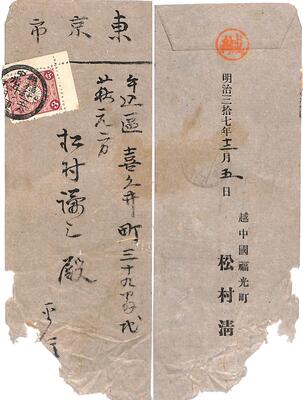 東京市
牛込區喜久井町三十九番地
萩元方
松村謙三殿
平信
緘
明治三拾七年十二月五日
越中國福光町
松村清